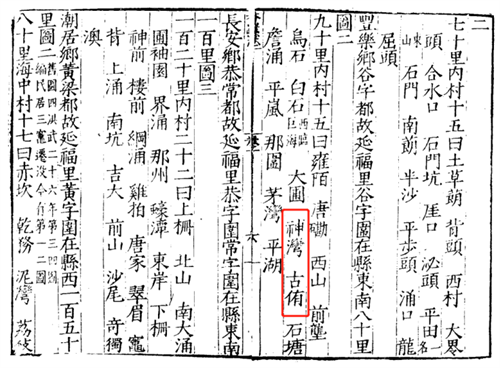 二
七十里内村十五曰土草蓢 背頭 西村 大
頭 合水口 石門坑 崖口 泌頭 平田名
石門 南蓢 半沙 平步頭 涌口 龍
屈頭
豐樂鄉谷字都故延福里谷字圍在縣東南八十里
圖二
九十里内村十五曰雍陌 唐磡 西山 前壟
烏石 白石 大圃 神灣 古侑 石塘
詹涌 平嵐 那圖 茅灣 平湖
六
長安鄉恭常都故延福里恭字圍常字圍在縣東南
一百里圖三
一百二十里内村二十二曰上柵 北山 南大涌
圃袖園 界涌 那州 蠔潭 東岸 下柵
神前 樓前 綱涌 雞拍 唐家 翠眉 竈
背 上涌 南坑 吉大 前山 沙尾 奇獨
澳
潮居鄉黃梁都故延福里黃字圍在縣西一百五十
里圖二 舊圖四洪武二十六年第三四圖編民居三竈遷没今有第二圖
八十里海中村十七曰赤坎 乾務 泥灣 荔枝